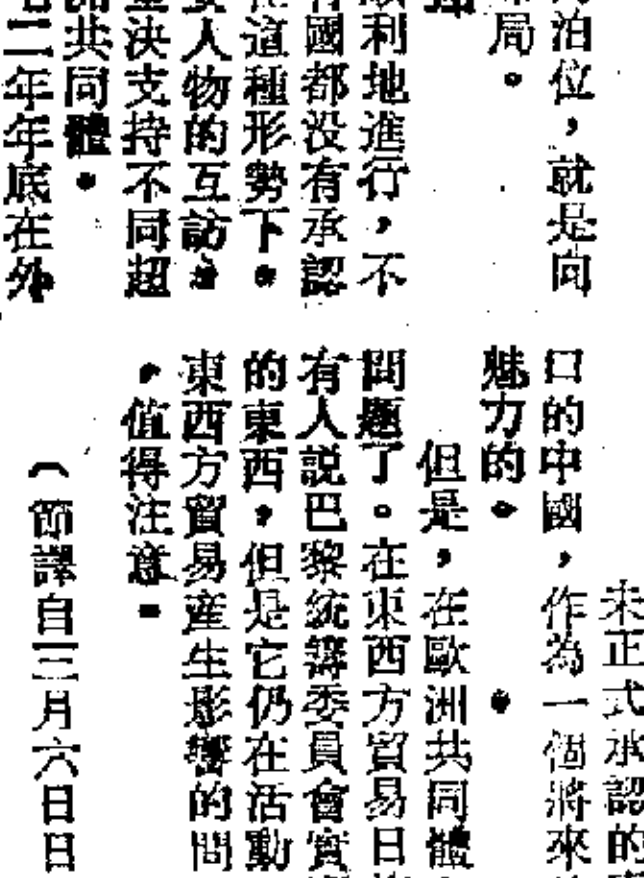 泊位，就是向
局。
利地進行，不
國都没有承認
這種形勢下。
人物的互訪，
決支持不同超
共同體。
二年年底在外
未正式承認的
口的中國，作為一個將來
魅力的。
但是，在歐洲共同體
問題了。在東西方貿易日
有人説巴黎統籌委員會實
的東西，但是它仍在活動
東西方貿易産生影響的問
，值得注意。
（節譯自三月六日日